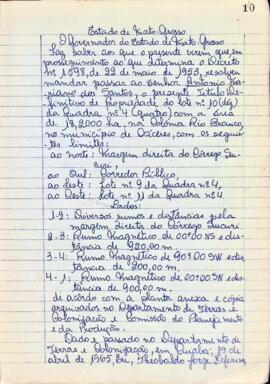 10
Estado de Mato-Grosso
O Governador do Estado de Mato-Grosso
Faz saber aos que o presente virem que, em
prosseguimento ao que determina o Decreto
nº 1.598, de 22 de maio de 1953, resolveu
mandar passar ao senhor Antonio
dos Santos, o presente Titulo De-
finitivo de Propriedade do lote nº 10 (dez)
da Quadra nº 4 (quatro) com a área
de 19,2000 ha, na Colonia Rio Branco,
no municipio de Cáceres, com os seguin-
tes limites:
ao norte: Margem direita do Córrego Su-
curi,
ao Sul: Corredor Público,
ao Leste: Lote nº 9 da Quadra nº 4,
ao Oeste: Lote nº 11 da Quadra nº 4
Lados:
1-2: Diversos rumos e distâncias pela
margem direita do córrego Sucuri.
2-3: Rumo Magnetico de 00º00 NS e dis-
tância de 920,00 m.
3-4: Rumo Magnético de 90º00 SW e dis-
tância de 200,00 m.
4-1: Rumo Magnetico de 00º00 SN e dis-
tância de 900,00 m.
de acôrdo com a planta anexa e cópia
arquivados no Departamento de Terras e
Colonização e Comissão do Planejamento
e da Produção.
Dado e passado no Departamento de
Terras e Colonização, em Cuiabá, 19 de
abril de 1965. Eu, Theobaldo Jorge